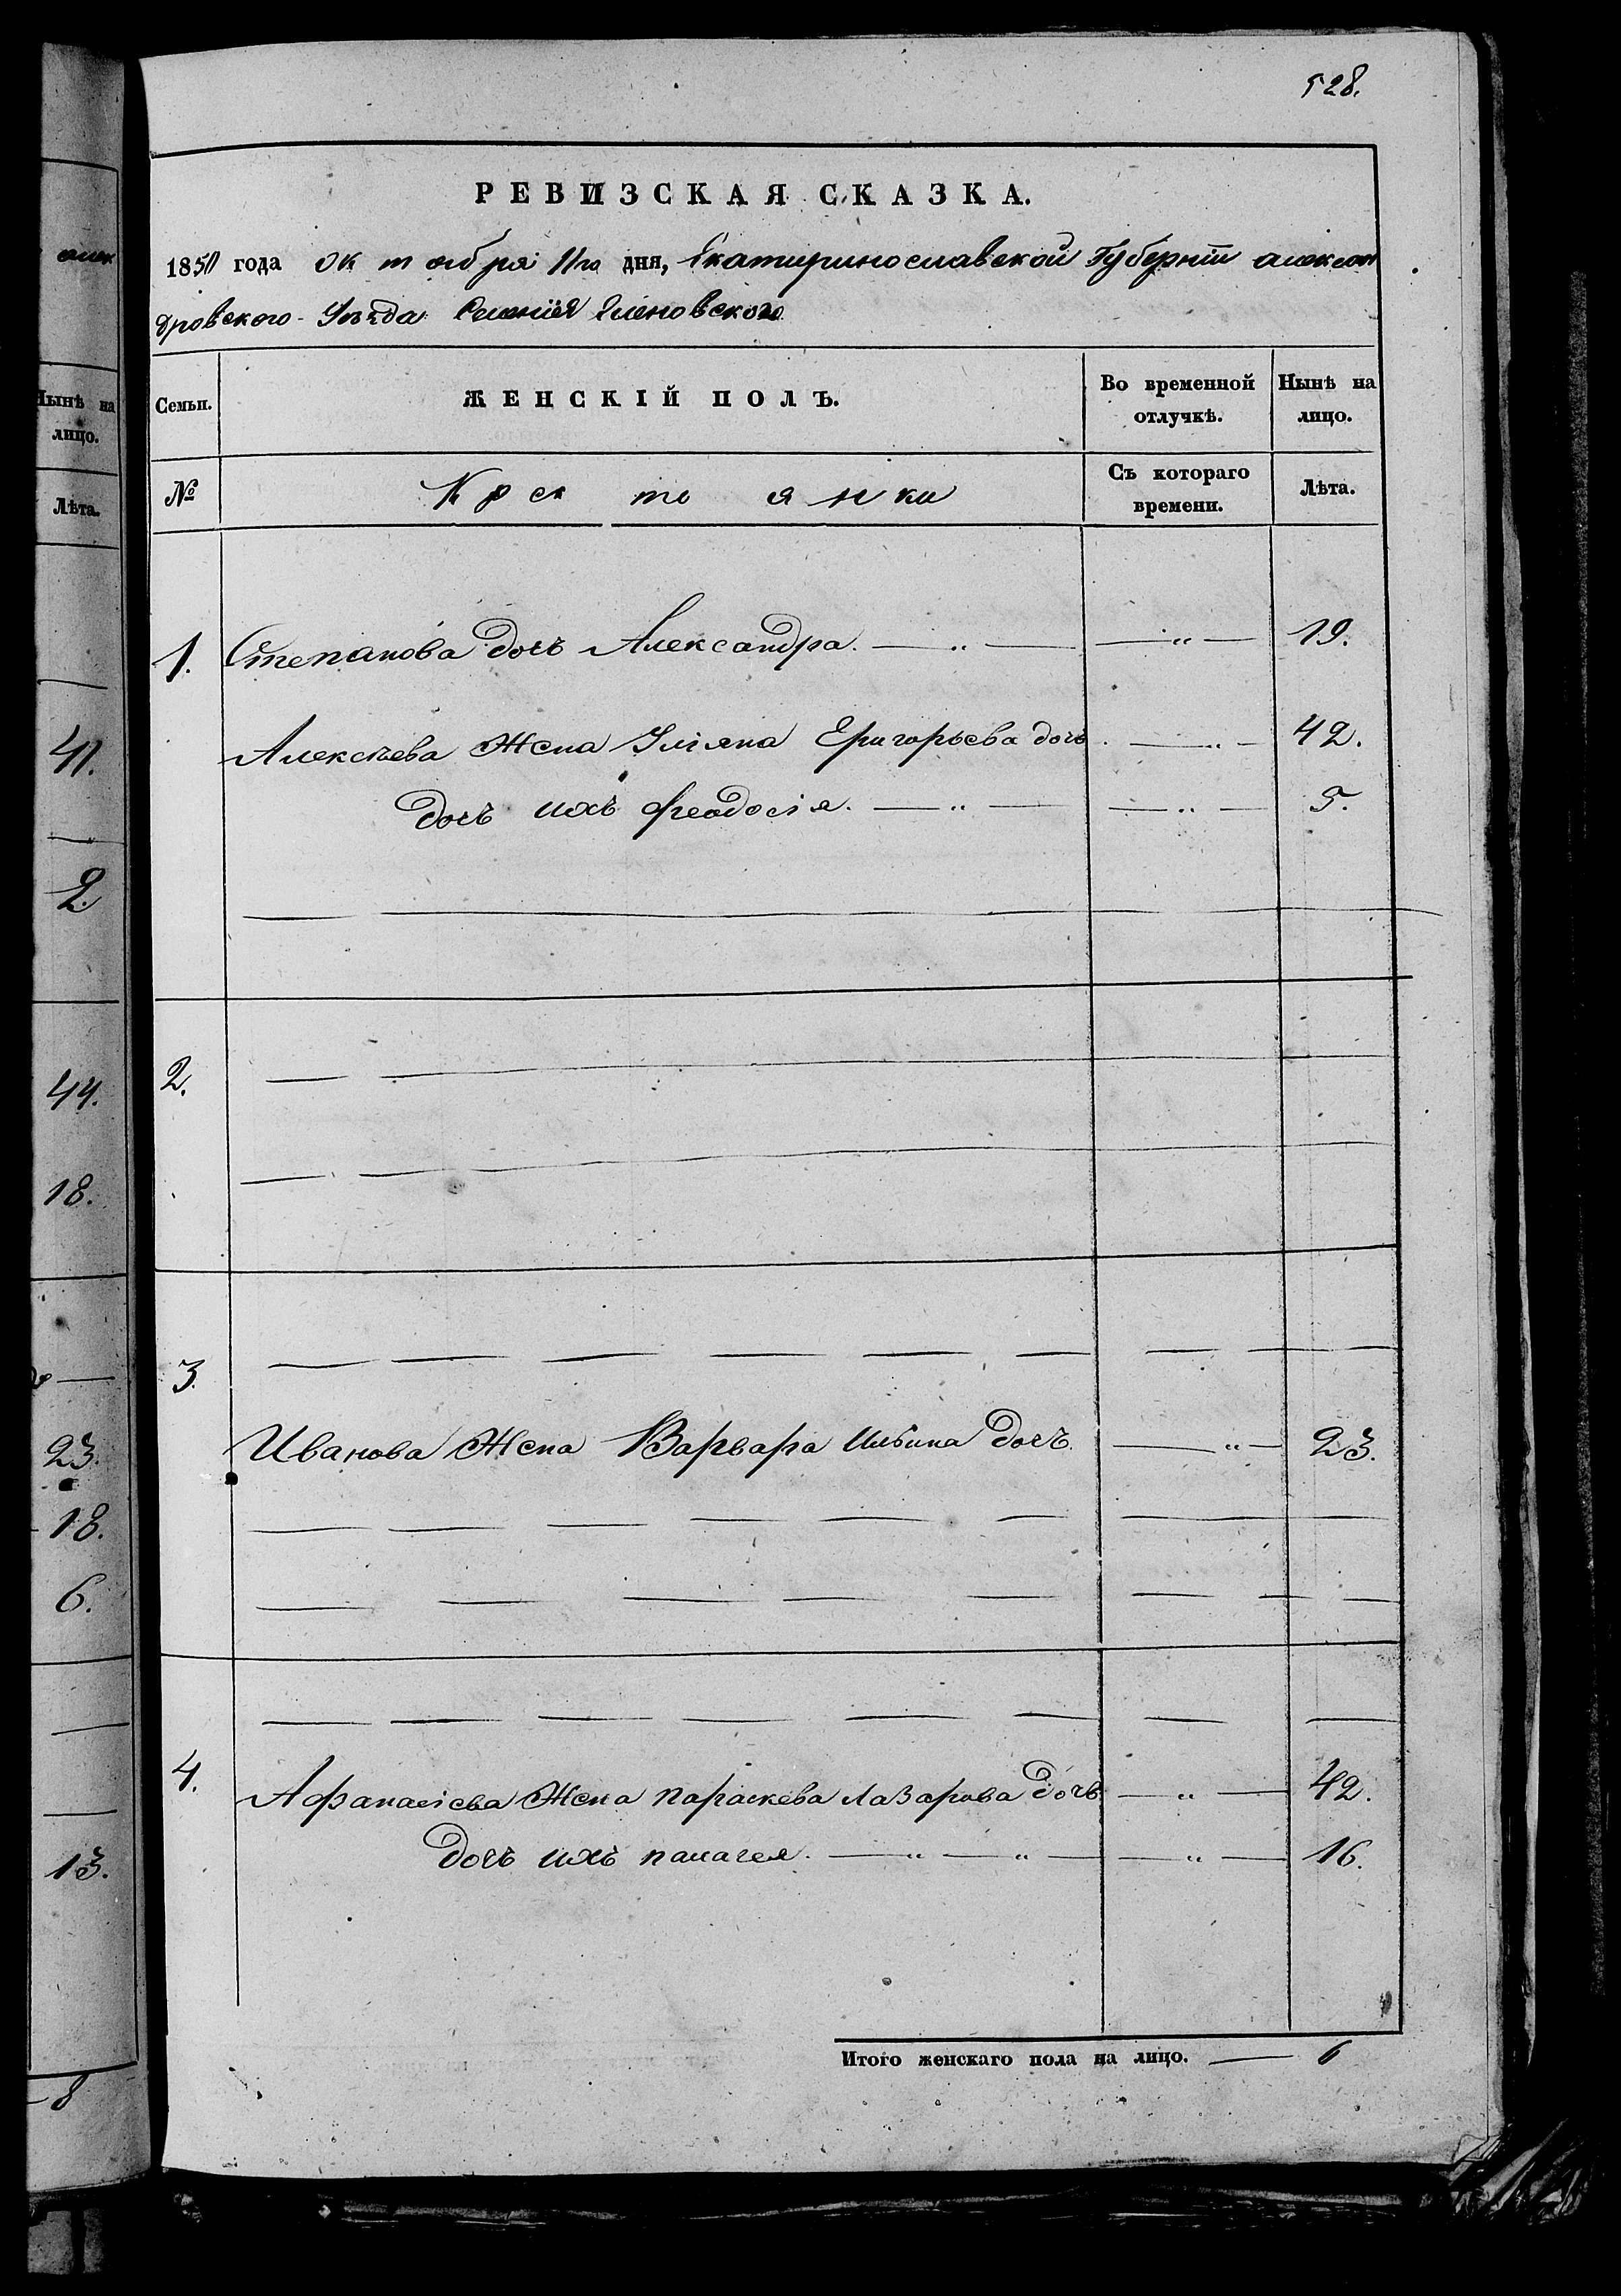 528.
РЕВИЗСКАЯ СКАЗКА.
1850 года октября 11го дня, Екатиринославской Губернiи алексан
дровского Уѣзда Селенiя Еленовского
Семьи.
ЖЕНСКІЙ ПОЛЪ.
Во временной отлучкѣ.
Нынѣ на лицо.
№
Крестьянки
Съ котораго времени.
Лѣта.
1. Степанова дочь Александра. — „ — — „ — 19.
Алексѣева Жена Улiяна Григорьева дочь — „ — 42.
дочь ихъ феодосiя. — „ — — „ — 5.
2.
3.
Иванова Жена Варвара Ильина дочь. — „ — 23.
4.
Афанасiева Жена параскева Лазарова дочь — „ — 42.
дочь ихъ палагея. — „ — „ — — „ — 16.
Итого женскаго пола на лицо. — 6
алек
Нынѣ на
лицо.
Лѣта.
41.
2
44.
18.
23.
18.
6.
13.
8